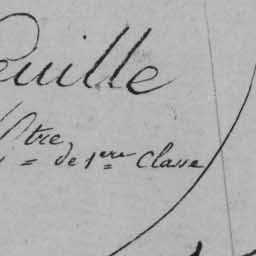 euille
Ntre
de 1ere Classe